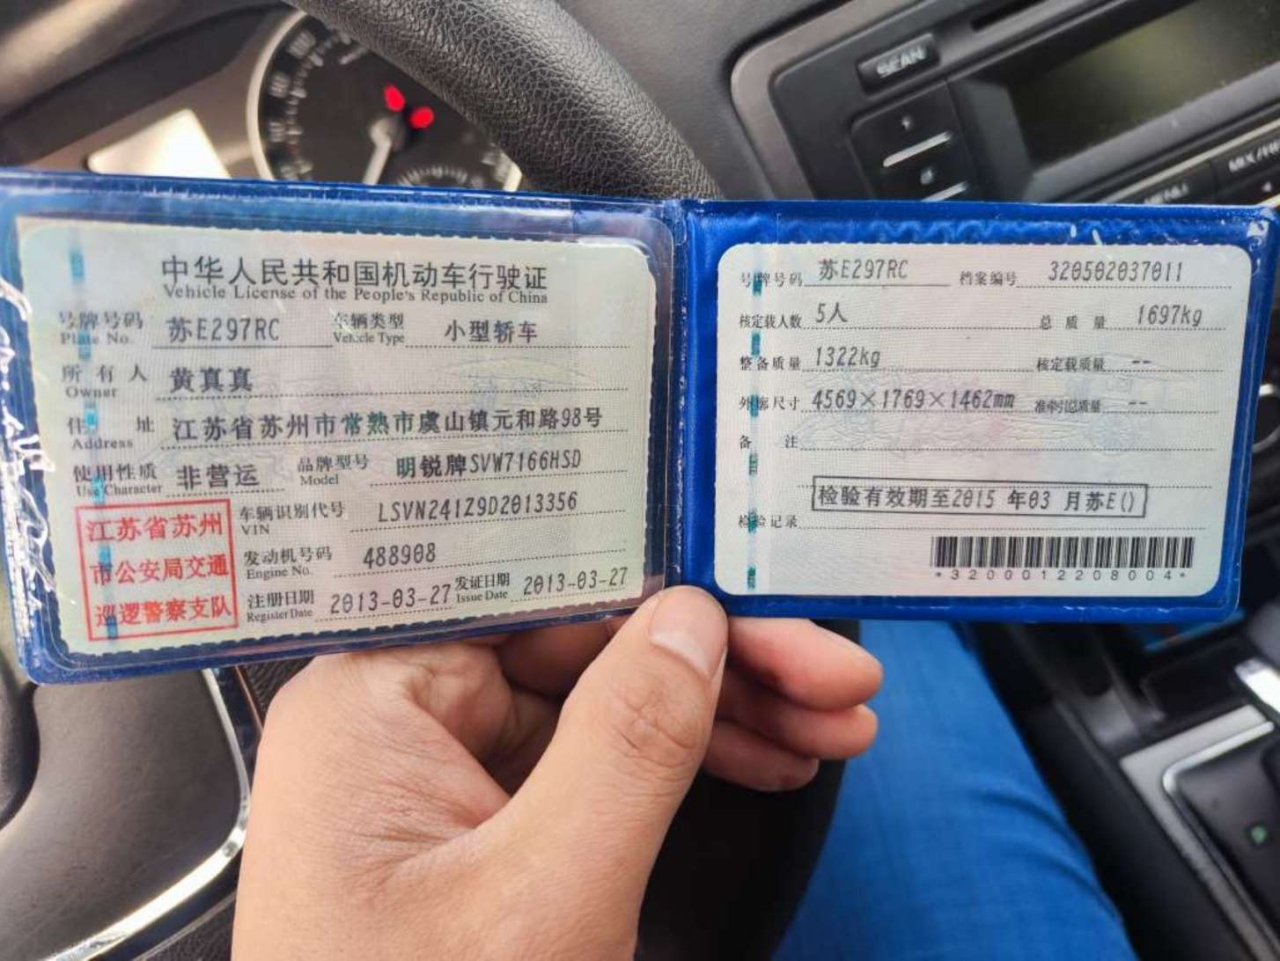 中华人民共和国机动车行驶证
Vehicle License of the People's Republic of China
号牌号码 苏E297RC 车辆类型 小型轿车
Plate No. Vehicle Type
所有人 黄真真
Owner
住址 江苏省苏州市常熟市虞山镇元和路98号
Address
使用性质 非营运 品牌型号 明锐牌SVW7166HSD
Use Character Model
江苏省苏州
市公安局交通
巡逻警察支队
车辆识别代号 LSVN241Z9D2013356
VIN
发动机号码 488908
Engine No.
注册日期 2013-03-27 发证日期 2013-03-27
Register Date Issue Date
号牌号码 苏E297RC 档案编号 320502037011
核定载人数 5人 总质量 1697kg
整备质量 1322kg 核定载质量 --
外廓尺寸 4569×1769×1462mm 准牵引总质量 --
备注
检验有效期至2015年03月苏E()
检验记录
*3200012208004*
SEAN